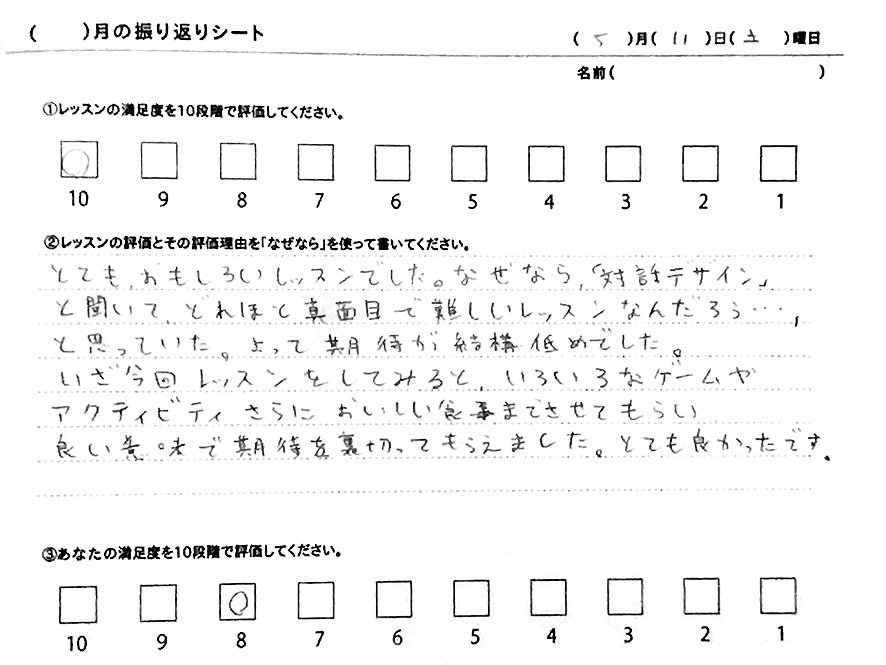 (　　)月の振り返りシート
( 5 )月( 11 )日( 土 )曜日
名前(　　　　　)
①レッスンの満足度を10段階で評価してください。
10 9 8 7 6 5 4 3 2 1
②レッスンの評価とその評価理由を「なぜなら」を使って書いてください。
とても、おもしろいレッスンでした。なぜなら、「対話デザイン」
と聞いて、どれほど真面目で難しいレッスンなんだろう…、
と思っていた。よって期待が結構低めでした。
いざ今回レッスンをしてみると、いろいろなゲームや
アクティビティさらにおいしい食事までさせてもらい
良い意味で期待を裏切ってもらえました。とても良かったです。
③あなたの満足度を10段階で評価してください。
10 9 8 7 6 5 4 3 2 1